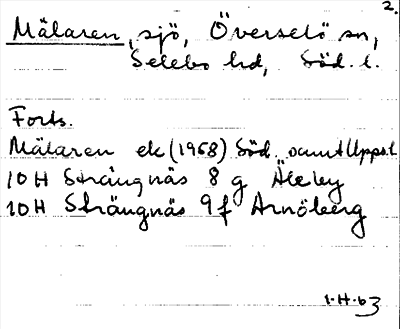 2.
Mälaren, sjö, Överselö sn,
Selebo hd, Söd. l.
Forts.
Mälaren ek (1968) Söd. samt Upps. l
10 H Strängnäs 8 g Åleby
10H Strängnäs 9 f Arnöberg